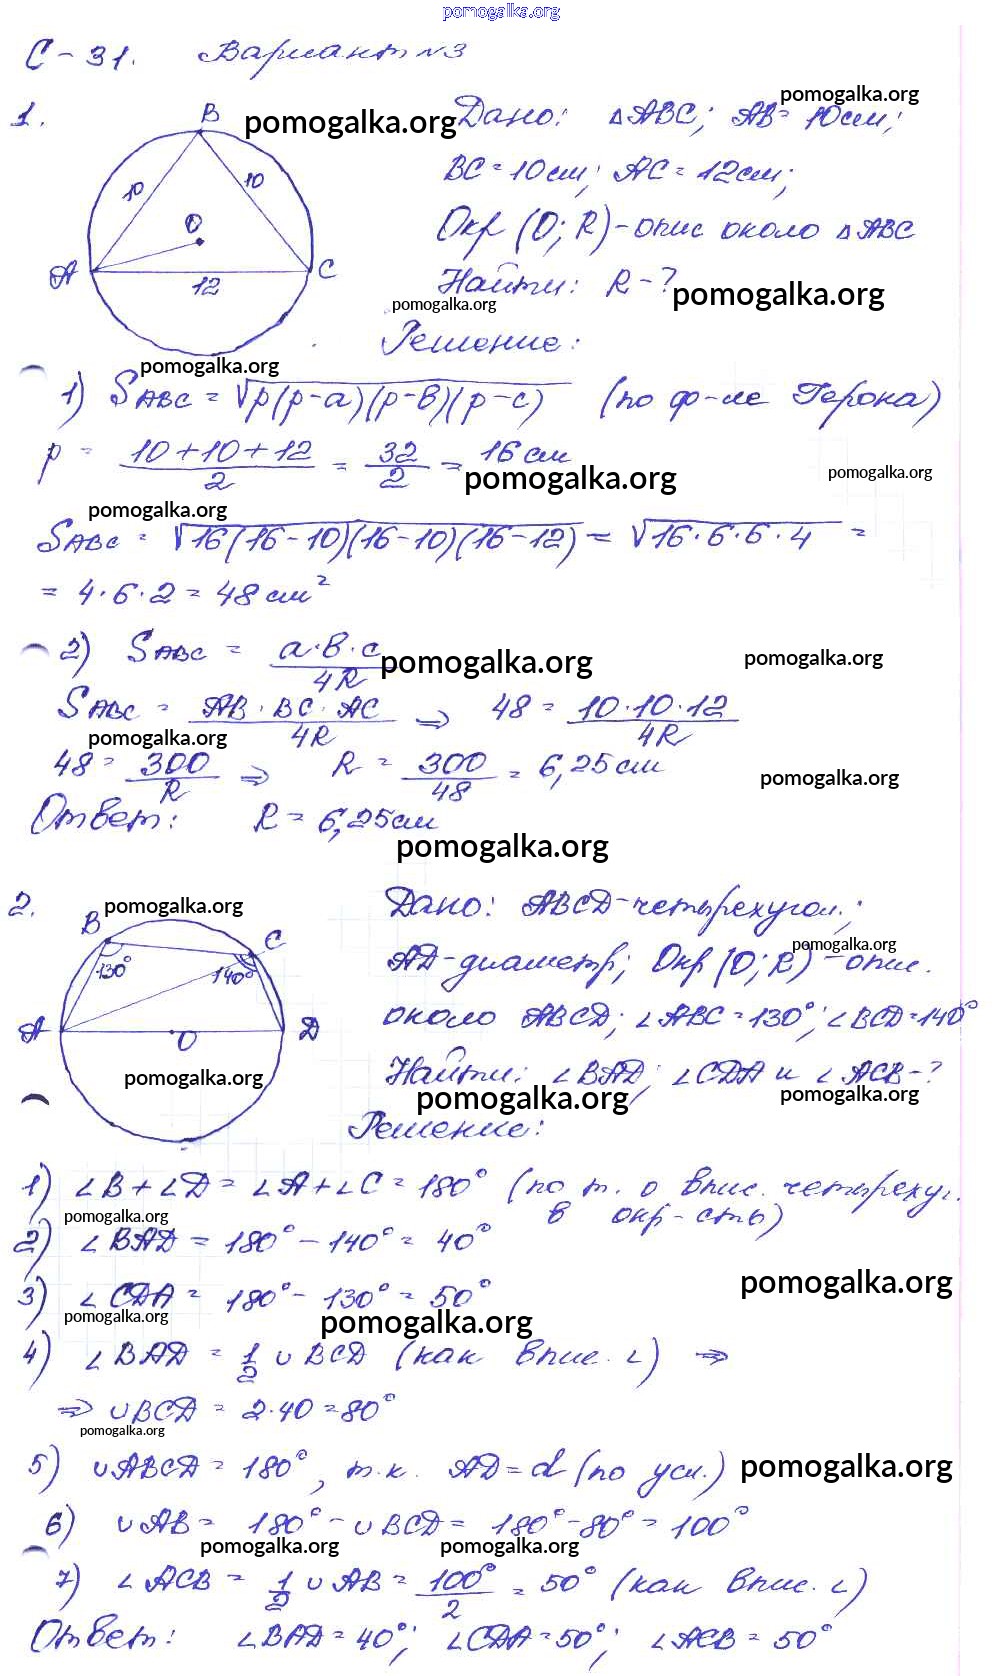 pomogalka.org
С-31. Вариант №3
1.
B
pomogalka.org
10
10
O
A
C
12
Дано: △ABC; AB = 10см;
pomogalka.org
BC = 10см; AC = 12см;
Окр (O; R) - опис около △ABC
Найти: R - ?
pomogalka.org
pomogalka.org
Решение:
pomogalka.org
1) SABC = √p(p-a)(p-b)(p-c) (по ф-ле Герона)
p = (10+10+12)/2 = 32/2 = 16 см
pomogalka.org
pomogalka.org
pomogalka.org
SABC = √16(16-10)(16-10)(16-12) = √16·6·6·4 =
= 4·6·2 = 48 см²
2) SABC = a·b·c/4R
pomogalka.org
pomogalka.org
SABC = AB·BC·AC/4R ⇒ 48 = 10·10·12/4R
pomogalka.org
48 = 300/R ⇒ R = 300/48 = 6,25 см
pomogalka.org
Ответ: R = 6,25см
pomogalka.org
2.
pomogalka.org
B
C
130°
140°
A
O
D
pomogalka.org
Дано: ABCD-четырехугол.;
pomogalka.org
AD-диаметр; Окр (O; R) - опис.
около ABCD; ∠ABC = 130°; ∠BCD = 140°
Найти: ∠BAD; ∠CDA и ∠ACB - ?
pomogalka.org
pomogalka.org
Решение:
1) ∠B + ∠D = ∠A + ∠C = 180° (по т. о впис. четырехуг.
в окр-сть)
pomogalka.org
2) ∠BAD = 180° - 140° = 40°
pomogalka.org
3) ∠CDA = 180° - 130° = 50°
pomogalka.org
pomogalka.org
4) ∠BAD = 1/2 ∪BCD (как впис. ∠) ⇒
⇒ ∪BCD = 2·40 = 80°
pomogalka.org
5) ∪ABCD = 180°, т.к. AD = d (по усл.)
pomogalka.org
6) ∪AB = 180° - ∪BCD = 180° - 80° = 100°
pomogalka.org
pomogalka.org
7) ∠ACB = 1/2 ∪AB = 100°/2 = 50° (как впис. ∠)
Ответ: ∠BAD = 40°; ∠CDA = 50°; ∠ACB = 50°